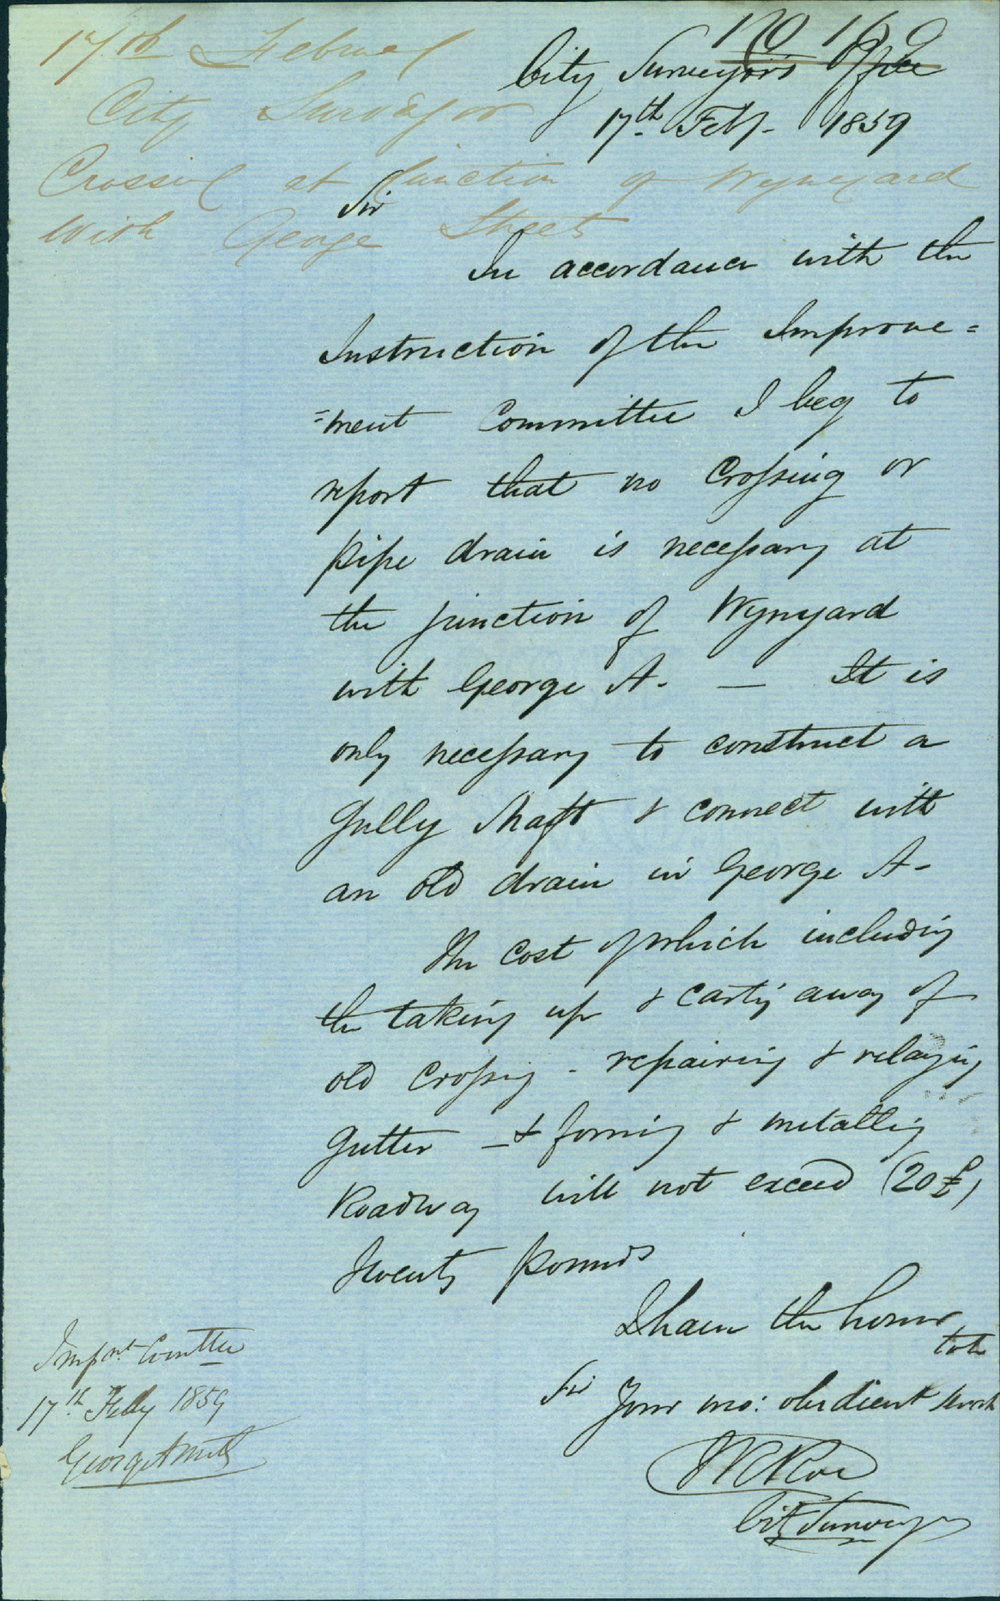 No 160
17th Februa
City Surveyor
Crossing at Junction of Wynyard
With George Street
City Surveyor's Office
17th Feby. 1859
Sir
In accordance with the
Instruction of the Improve=
=ment Committee I beg to
report that no Crossing or
pipe drain is necessary at
the junction of Wynyard
with George St. — It is
only necessary to construct a
Gully Shaft & connect with
an old drain in George St.
The cost of which including
the taking up & carting away of
old crossing - repairing & relaying
Gutter — & forming & metalling
Roadway will not exceed (20£)
Twenty pounds
I have the honor
to be
Sir Your mo: obedient Servt
City Surveyor
Impmt. Comttee
17th Feby 1859
George A